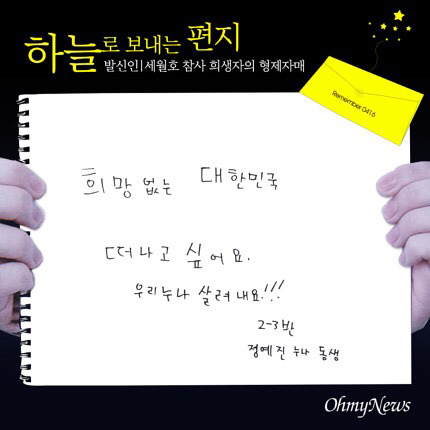 하늘로 보내는 편지
발신인|세월호 참사 희생자의 형제자매
Remember 0416
희망 없는 대한민국
떠나고 싶어요.
우리누나 살려내요!!!
2-3반
정예진 누나 동생
OhmyNews